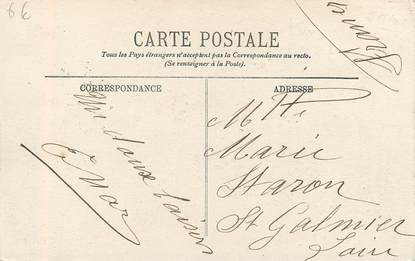 6€
CARTE POSTALE
Tous les Pays étrangers n'acceptent pas la Correspondance au recto.
(Se renseigner à la Poste).
CORRESPONDANCE
ADRESSE
doux baisers
Mlle
Marie
Staron
St Galmier
Loire